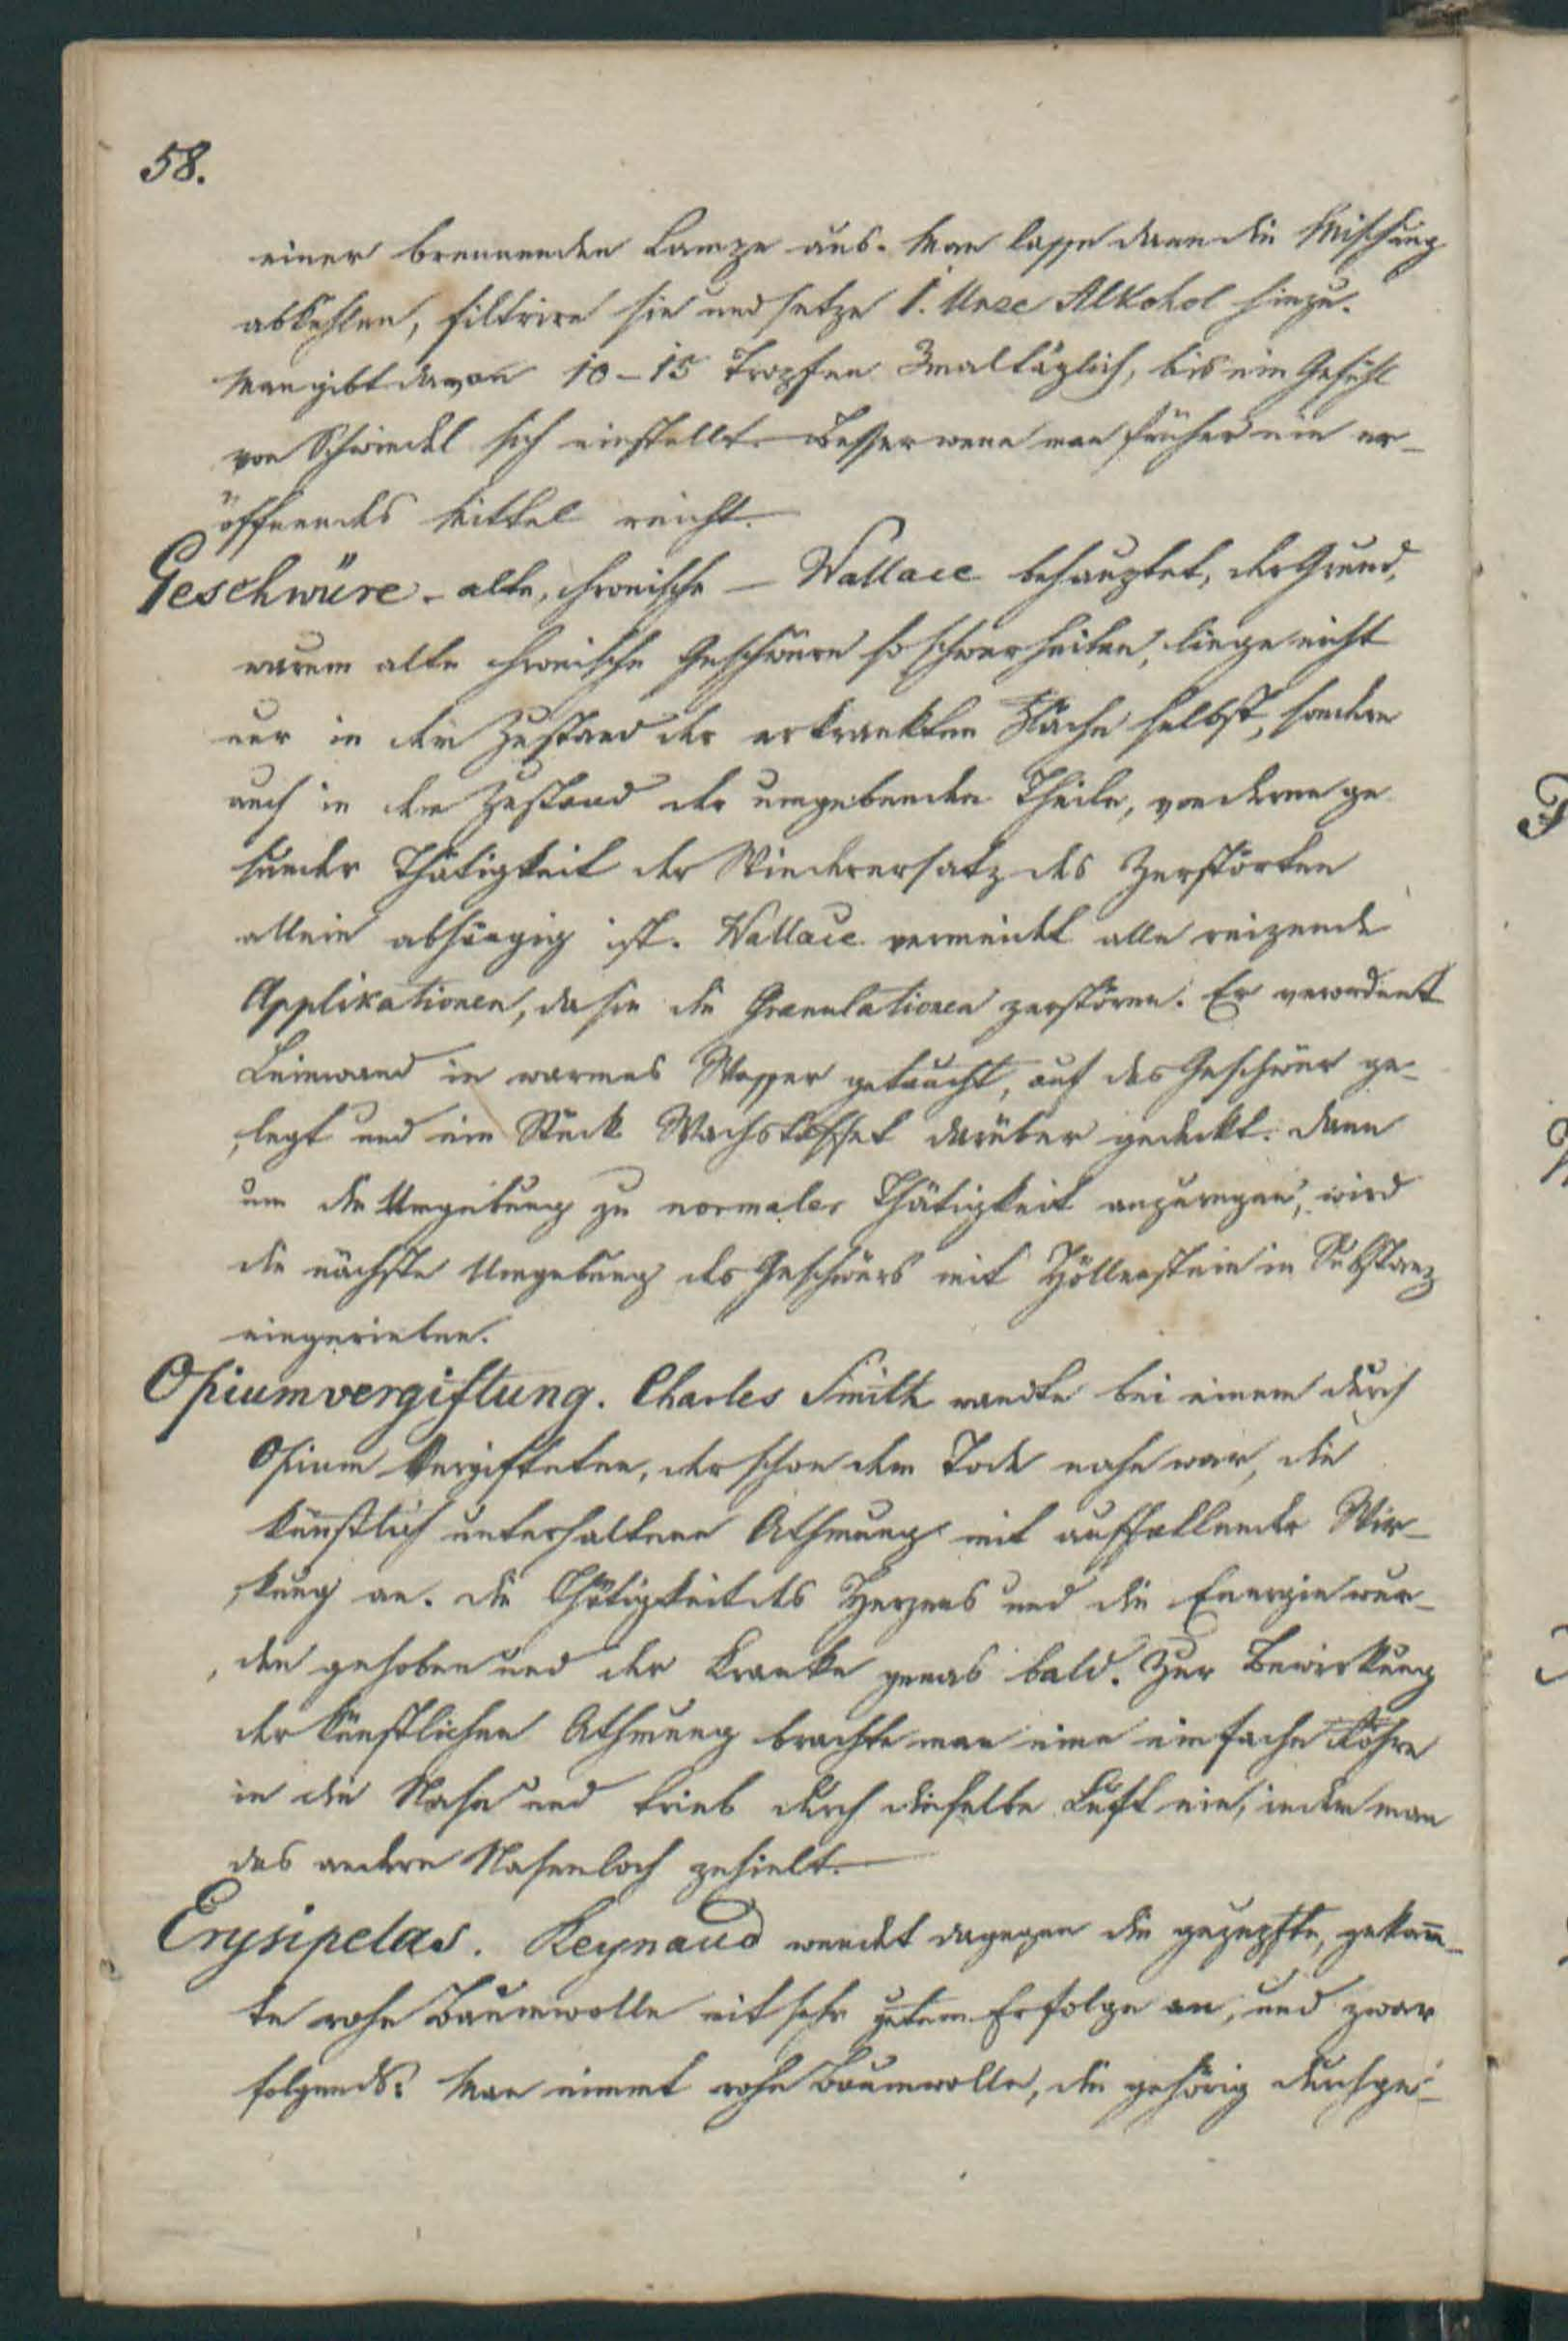 58.
einer brennenden Lampe aus. Man lasse dann die Mischung
abkühlen, filtrire sie und setze 1. Unze Alkohol hinzu.
Man gibt davon 10-15 Tropfen 3mal täglich, bis ein Gefühl
von Schwindel sich einstellt. Besser wenn man früher ein er-
öffnendes Mittel reicht.
Geschwüre - alte, chronische - Wallace behauptet, der Grund,
warum alte chronische Geschwüre so schwer heilen, liege nicht
nur in dem Zustand der erkrankten Fläche selbst, sondern
auch in dem Zustand der umgebenden Theile, von deren ge
sunder Thätigkeit der Wiederersatz des Zerstörten
allein abhängig ist. Wallace vermeidet alle reizende
Applikationen, da sie die Granulationen zerstören. Er verordnet
Leinwand in warmes Wasser getaucht, auf das Geschwür ge-
legt und ein Stück Wachstaffet darüber gedeckt. Dann
um die Umgebung zu normaler Thätigkeit anzuregen, wird
die nächste Umgebung des Geschwürs mit Höllenstein in Substanz
eingerieben.
Opiumvergiftung. Charles Smith wandte bei einem durch
Opium Vergifteten, der schon dem Tode nahe war, die
künstlich unterhaltene Athmung mit auffallender Wir-
kung an. Die Thätigkeit des Herzens und die Energie wur-
den gehoben und der Kranke genas bald. Zur Bewirkung
der künstlichen Athmung brachte man eine einfache Röhre
in die Nase und trieb durch dieselbe Luft ein, indem man
das andere Nasenloch zuhielt.
Erysipelas. Reynaud wendet dagegen die gezupfte, gekäm̄-
te rohe Baumwolle mit sehr gutem Erfolge an, und zwar
folgends: Man nimmt rohe Baumwolle, die gehörig durchge-